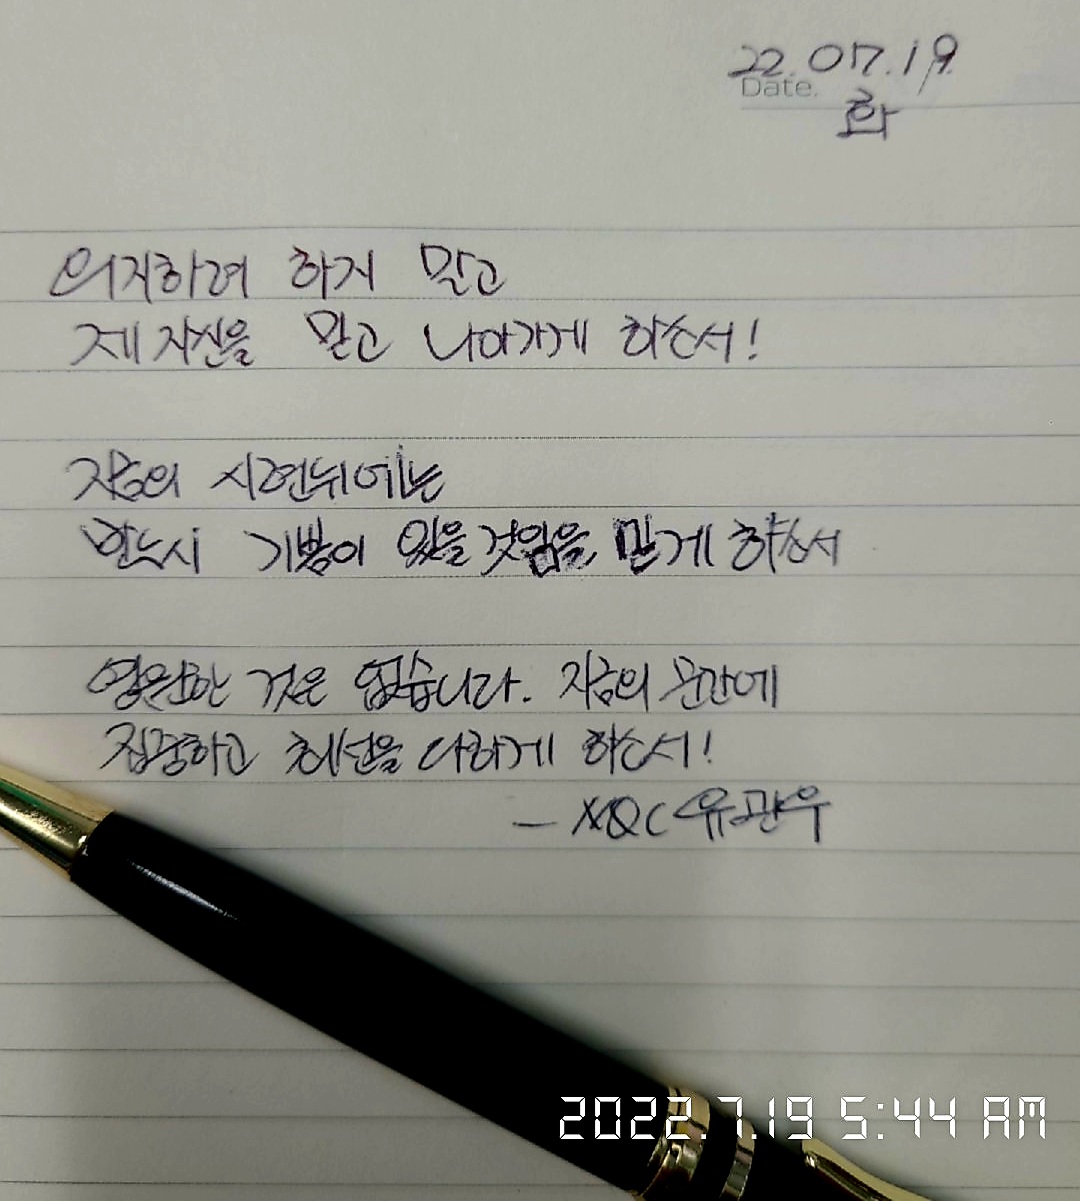 22.07.19.
Date.
화
의지하려 하게 말고
제 자신을 믿고 나아가게 하소서!
지금의 시련뒤에는
반드시 기쁨이 있을것임을 믿게 하소서
영원한 것은 없습니다. 지금의 순간에
집중하고 최선을 다하게 하소서!
- MQC 유관우
2022.7.19 5:44 AM